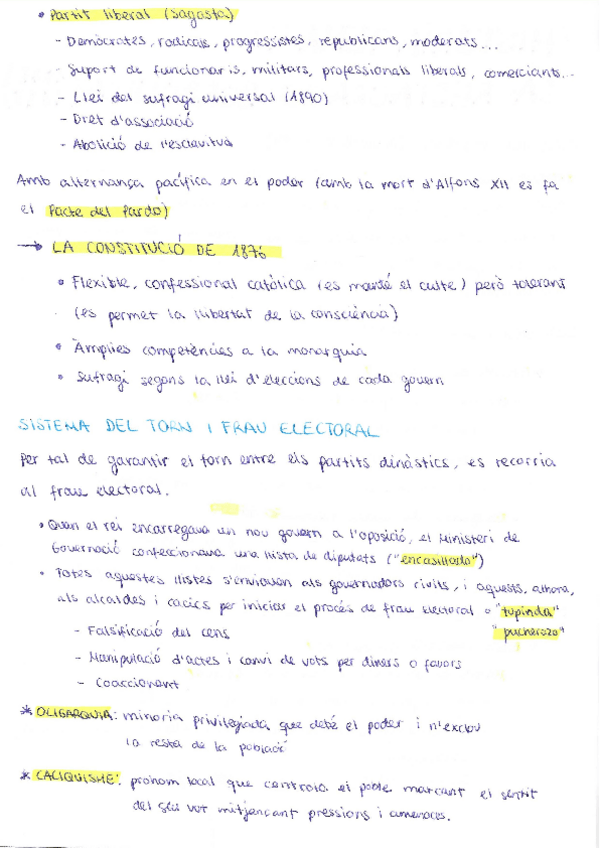 • Partit liberal (Sagasta)
- Demòcrates, radicals, progressistes, republicans, moderats...
- Suport de funcionaris, militars, professionals liberals, comerciants...
- Llei del sufragi universal (1890)
- Dret d'associació
- Abolició de l'esclavitud
Amb alternança pacífica en el poder (amb la mort d'Alfons XII es fa
el Pacte del Pardo)
→ LA CONSTITUCIÓ DE 1876
• Flexible, confessional catòlica (es manté el culte) però tolerant
(es permet la llibertat de la consciència)
• Àmplies competències a la monarquia
• Sufragi segons la llei d'eleccions de cada govern
SISTEMA DEL TORN I FRAU ELECTORAL
Per tal de garantir el torn entre els partits dinàstics, es recorria
al frau electoral.
• Quan el rei encarregava un nou govern a l'oposició, el Ministeri de
Governació confeccionava una llista de diputats ("encasillado")
• Totes aquestes llistes s'enviaven als governadors civils, i aquests, alhora,
als alcaldes i cacics per iniciar el procés de frau electoral o "tupinda"
"pucherazo"
- Falsificació del cens
- Manipulació d'actes i canvi de vots per diners o favors
- Coaccionant
* OLIGARQUIA: minoria privilegiada que deté el poder i n'exclou
la resta de la població
* CACIQUISME: prohom local que controla el poble marcant el sentit
del seu vot mitjançant pressions i amenaces.